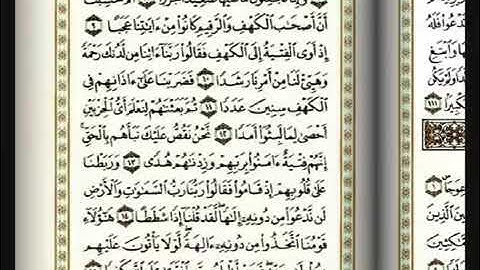 تَدْعُوا۟ فَلَهُ
وَٱبْتَغِ
عِوَجَا
أَنَّ أَصْحَٰبَ ٱلْكَهْفِ وَٱلرَّقِيمِ كَانُوا۟ مِنْ ءَايَٰتِنَا عَجَبًا ٩
إِذْ أَوَى ٱلْفِتْيَةُ إِلَى ٱلْكَهْفِ فَقَالُوا۟ رَبَّنَآ ءَاتِنَا مِن لَّدُنكَ رَحْمَةً
وَهَيِّئْ لَنَا مِنْ أَمْرِنَا رَشَدًا ١٠ فَضَرَبْنَا عَلَىٰٓ ءَاذَانِهِمْ فِى
ٱلْكَهْفِ سِنِينَ عَدَدًا ١١ ثُمَّ بَعَثْنَٰهُمْ لِنَعْلَمَ أَىُّ ٱلْحِزْبَيْنِ
أَحْصَىٰ لِمَا لَبِثُوٓا۟ أَمَدًا ١٢ نَّحْنُ نَقُصُّ عَلَيْكَ نَبَأَهُم بِٱلْحَقِّ
إِنَّهُمْ فِتْيَةٌ ءَامَنُوا۟ بِرَبِّهِمْ وَزِدْنَٰهُمْ هُدًى ١٣ وَرَبَطْنَا
عَلَىٰ قُلُوبِهِمْ إِذْ قَامُوا۟ فَقَالُوا۟ رَبُّنَا رَبُّ ٱلسَّمَٰوَٰتِ وَٱلْأَرْضِ
لَن نَّدْعُوَا۟ مِن دُونِهِۦٓ إِلَٰهًا لَّقَدْ قُلْنَآ إِذًا شَطَطًا ١٤ هَٰٓؤُلَآءِ
قَوْمُنَا ٱتَّخَذُوا۟ مِن دُونِهِۦٓ ءَالِهَةً لَّوْلَا يَأْتُونَ عَلَيْهِم